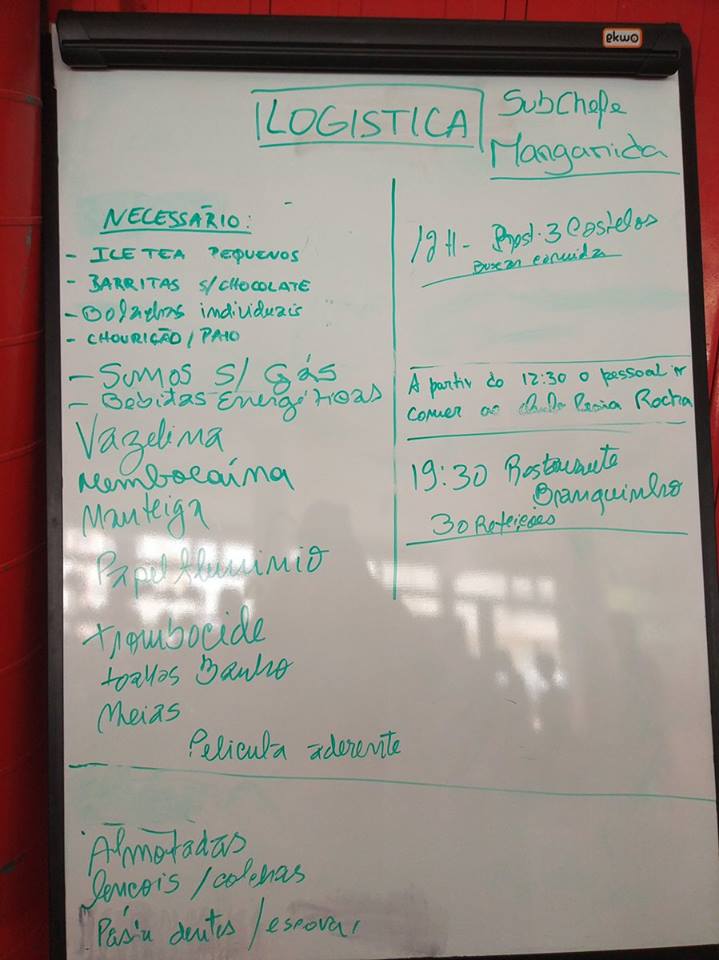 ekwo
LOGISTICA
SubChefe
Margarida
NECESSÁRIO:
- ICE TEA PEQUENOS
- BARRITAS S/CHOCOLATE
- Bolachas individuais
- CHOURIÇÃO / PAIO
- Sumos S/ Gás
- Bebidas Energéticas
Vazelina
Manteiga
Papel Aluminio
trombocide
toalhas Banho
Meias
Pelicula aderente
Almofadas
lencois / colchas
Pasta dentes / escovas
12H - Rest. 3 Castelos
Buscar comida
A partir do 12:30 o pessoal ir
comer ao Rocha
19:30 Restaurante
Branquinho
30 Refeições